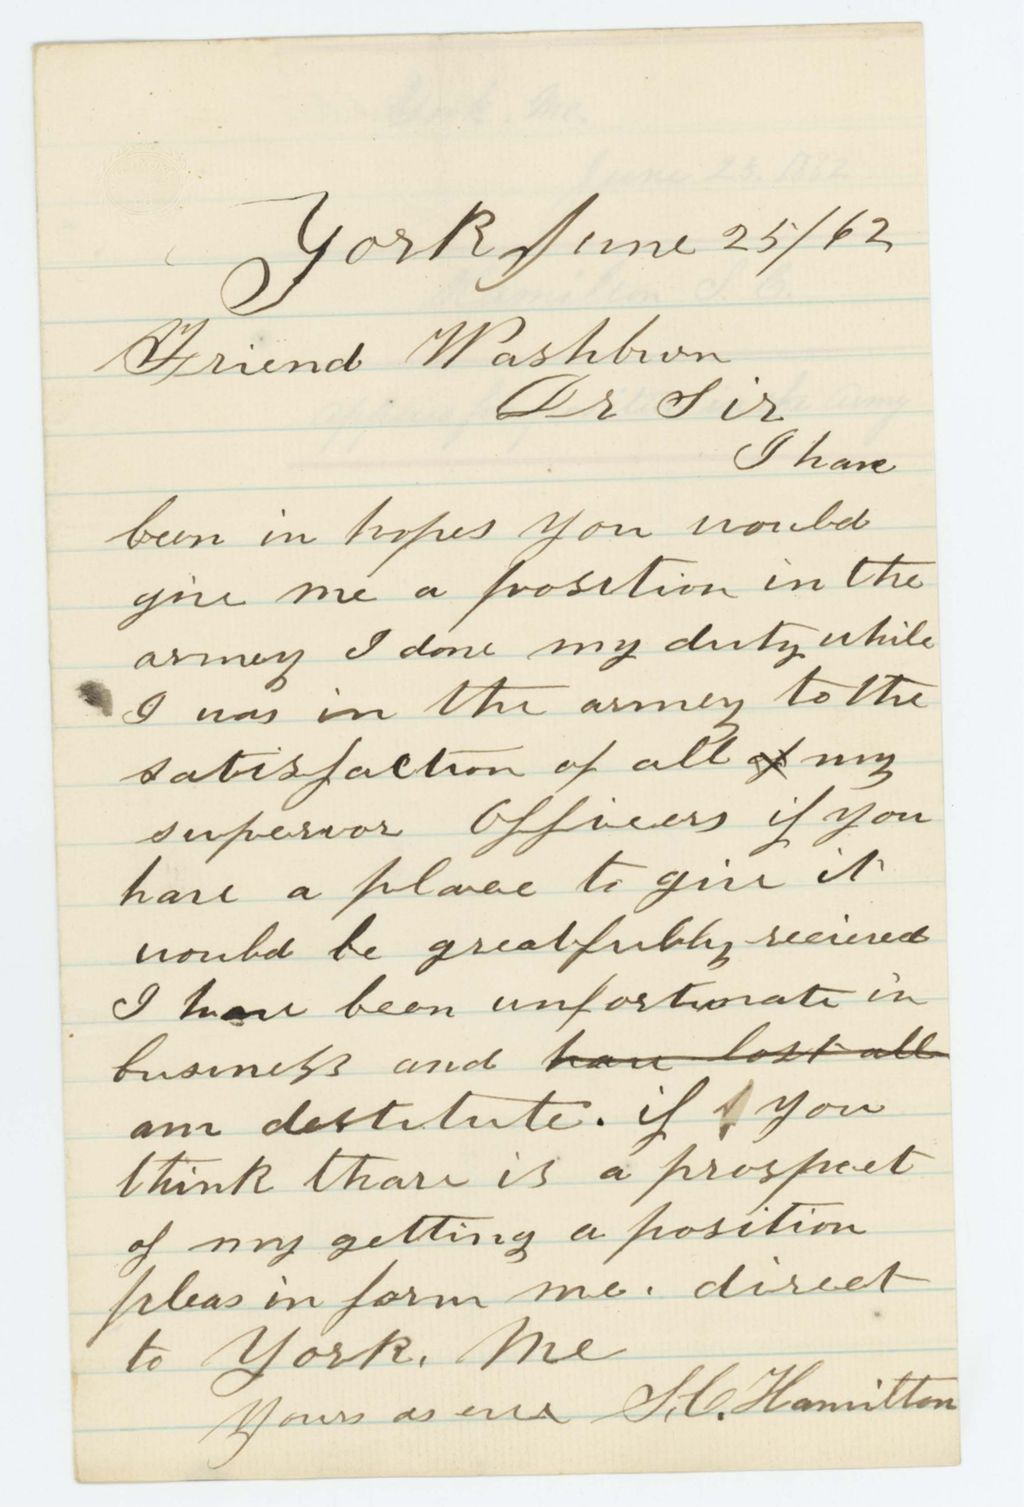 York June 25/62
Friend Washburn
Dr Sir
I have
been in hopes you would
give me a position in the
armey I done my duty while
I was in the armey to the
satisfaction of all of my
superior Officers if you
have a place to give it
would be greatfully recieved
I have been unfortunate in
business and have lost all
am destitute. if you
think thare is a prospect
of my getting a position
pleas in form me. direct
to York. Me
Yours as ever S. C. Hamilton